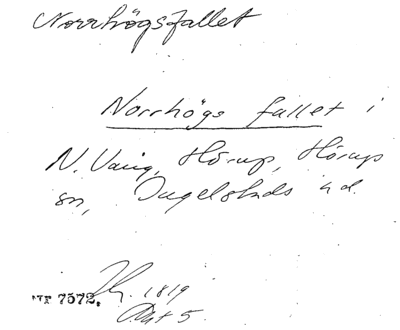 Norrhögsfallet
Norrhögs fallet i
N. Vang, Hörup, Hörups
sn, Ingelstads hd.
1819
MF 7572. Akt 5